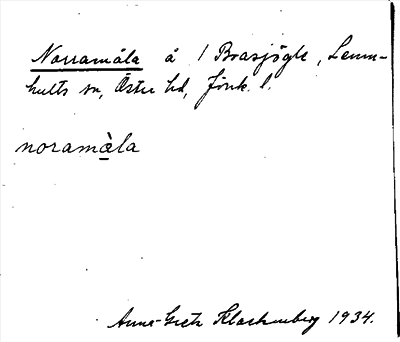 Norramåla å 1 Brasjögle, Lemn-
hults sn, Östra hd, Jönk. l.
noramåla
Anna-Greta Klackenberg 1934.